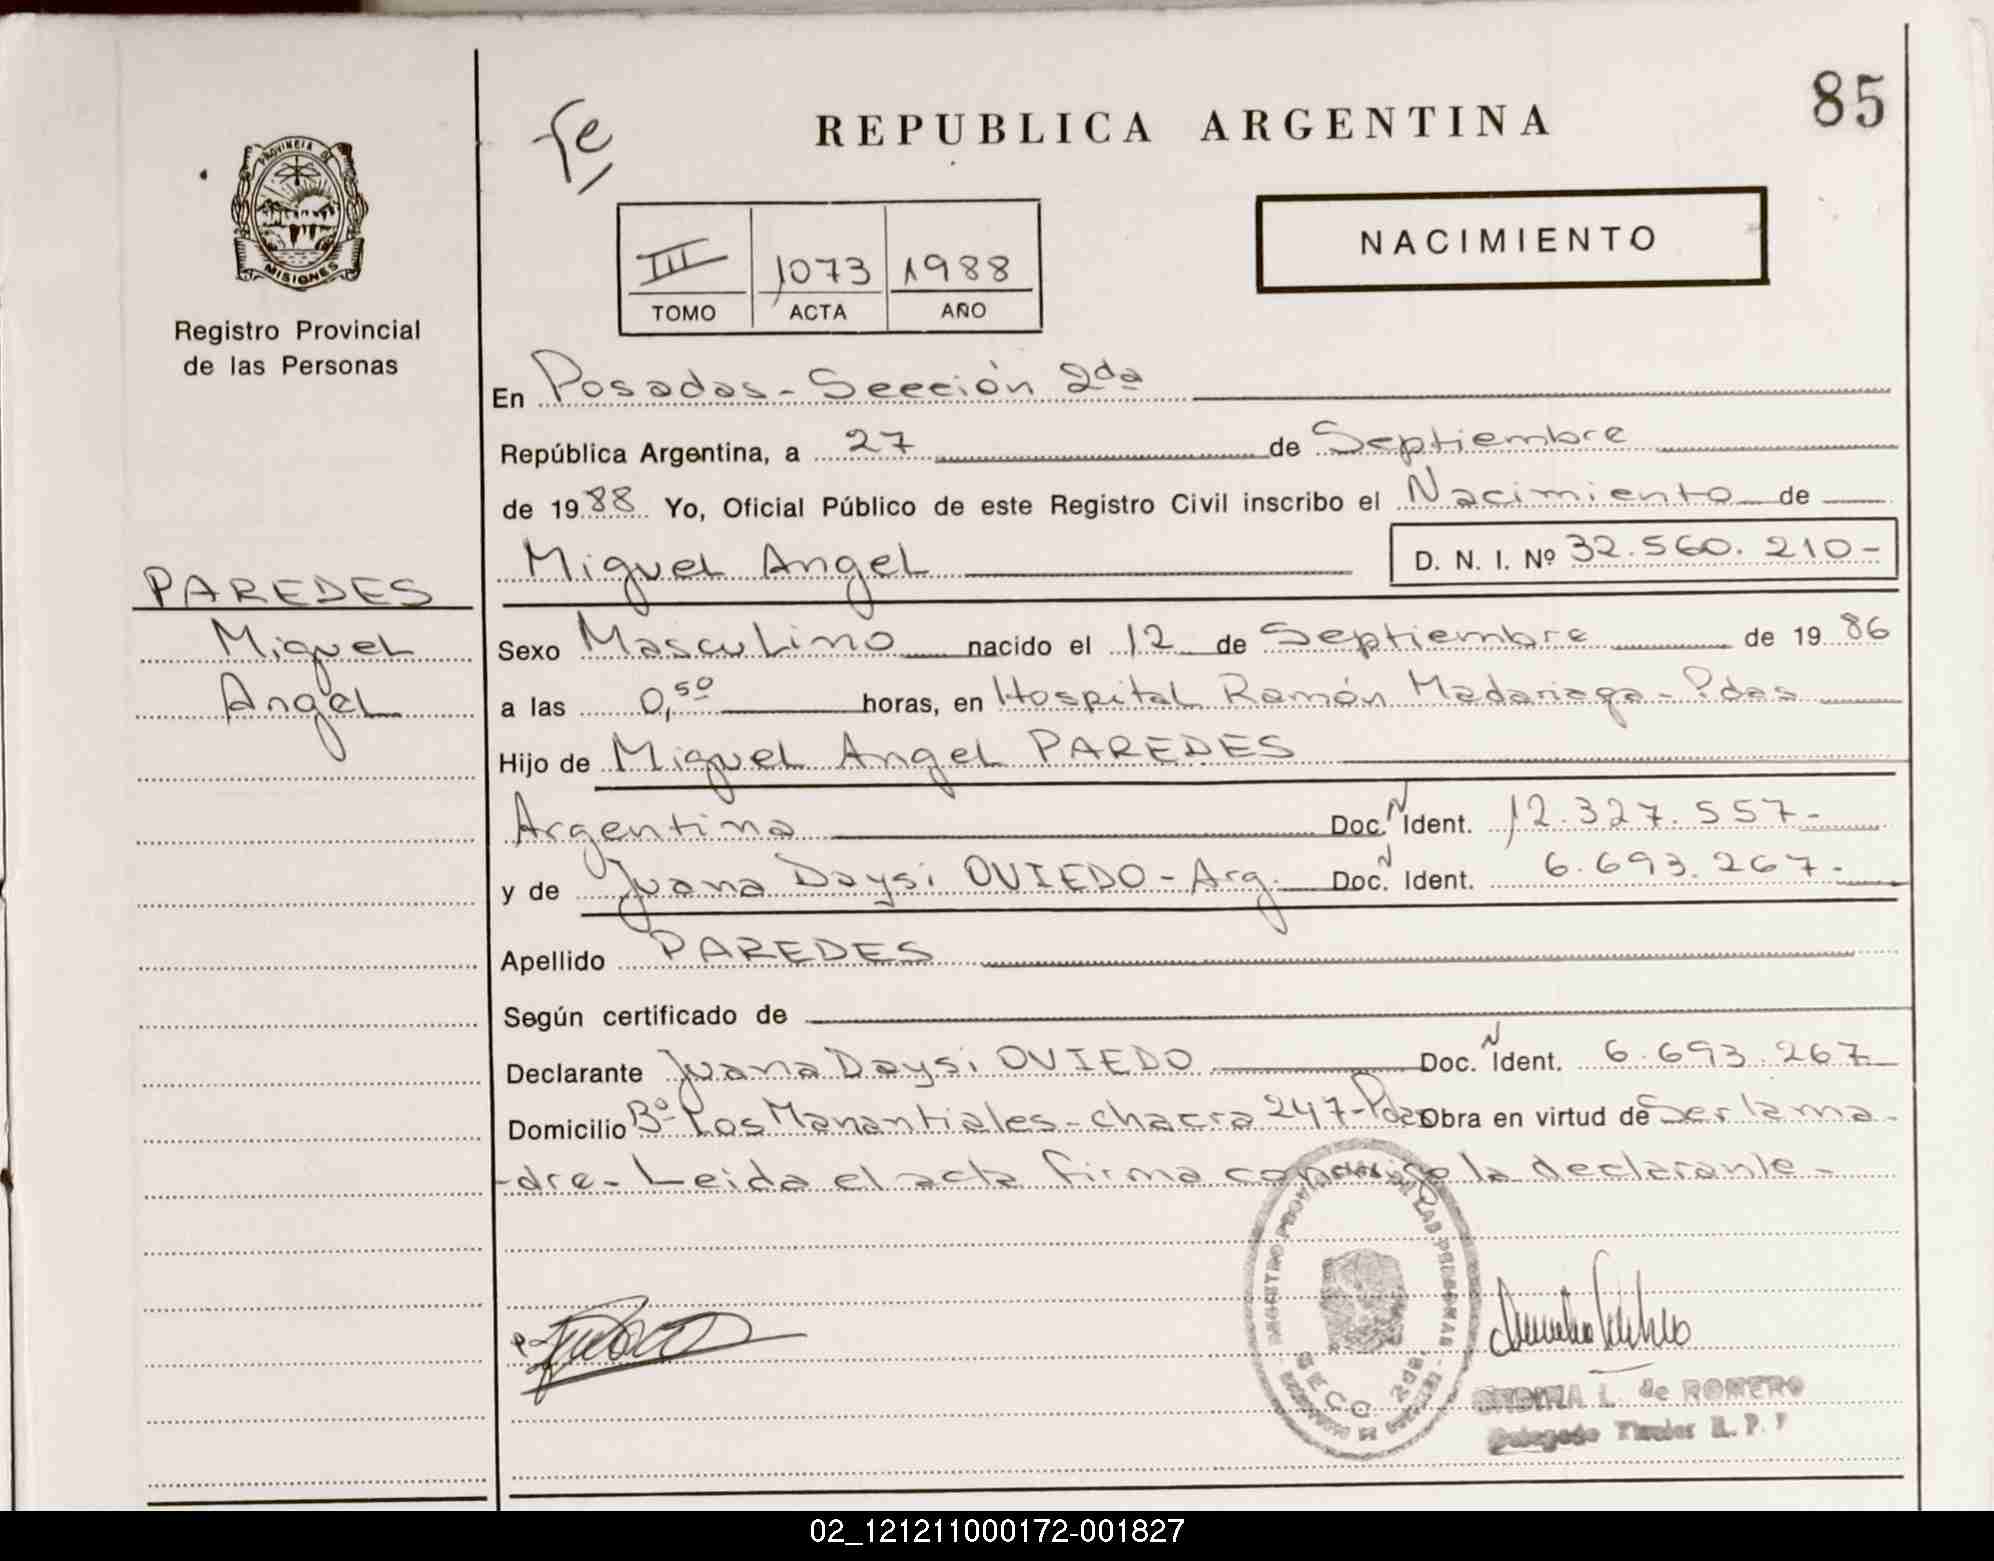 85
REPUBLICA ARGENTINA
NACIMIENTO
PROVINCIA DE
MISIONES
Registro Provincial
de las Personas
III 1073 1988
TOMO ACTA AÑO
En Posadas - Sección 2da
República Argentina, a 27 de Septiembre
de 1988 Yo, Oficial Público de este Registro Civil inscribo el Nacimiento de
Miguel Angel D. N. I. Nº 32.560.210-
PAREDES
Miguel
Angel
Sexo Masculino nacido el 12 de Septiembre de 1986
a las 0,50 horas, en Hospital Ramón Madariaga - Pdas
Hijo de Miguel Angel PAREDES
Argentina Doc. N Ident. 12.327.557-
y de Juana Daysi OVIEDO - Arg. Doc. N Ident. 6.693.267-
Apellido PAREDES
Según certificado de
Declarante Juana Daysi OVIEDO Doc. N Ident. 6.693.267
Domicilio Bº Los Manantiales - chacra 247 - Pdas Obra en virtud de Ser la ma-
-dre - Leida el acta firma conmigo la declarante -
SECC 2da
L. de ROMERO
02_121211000172-001827